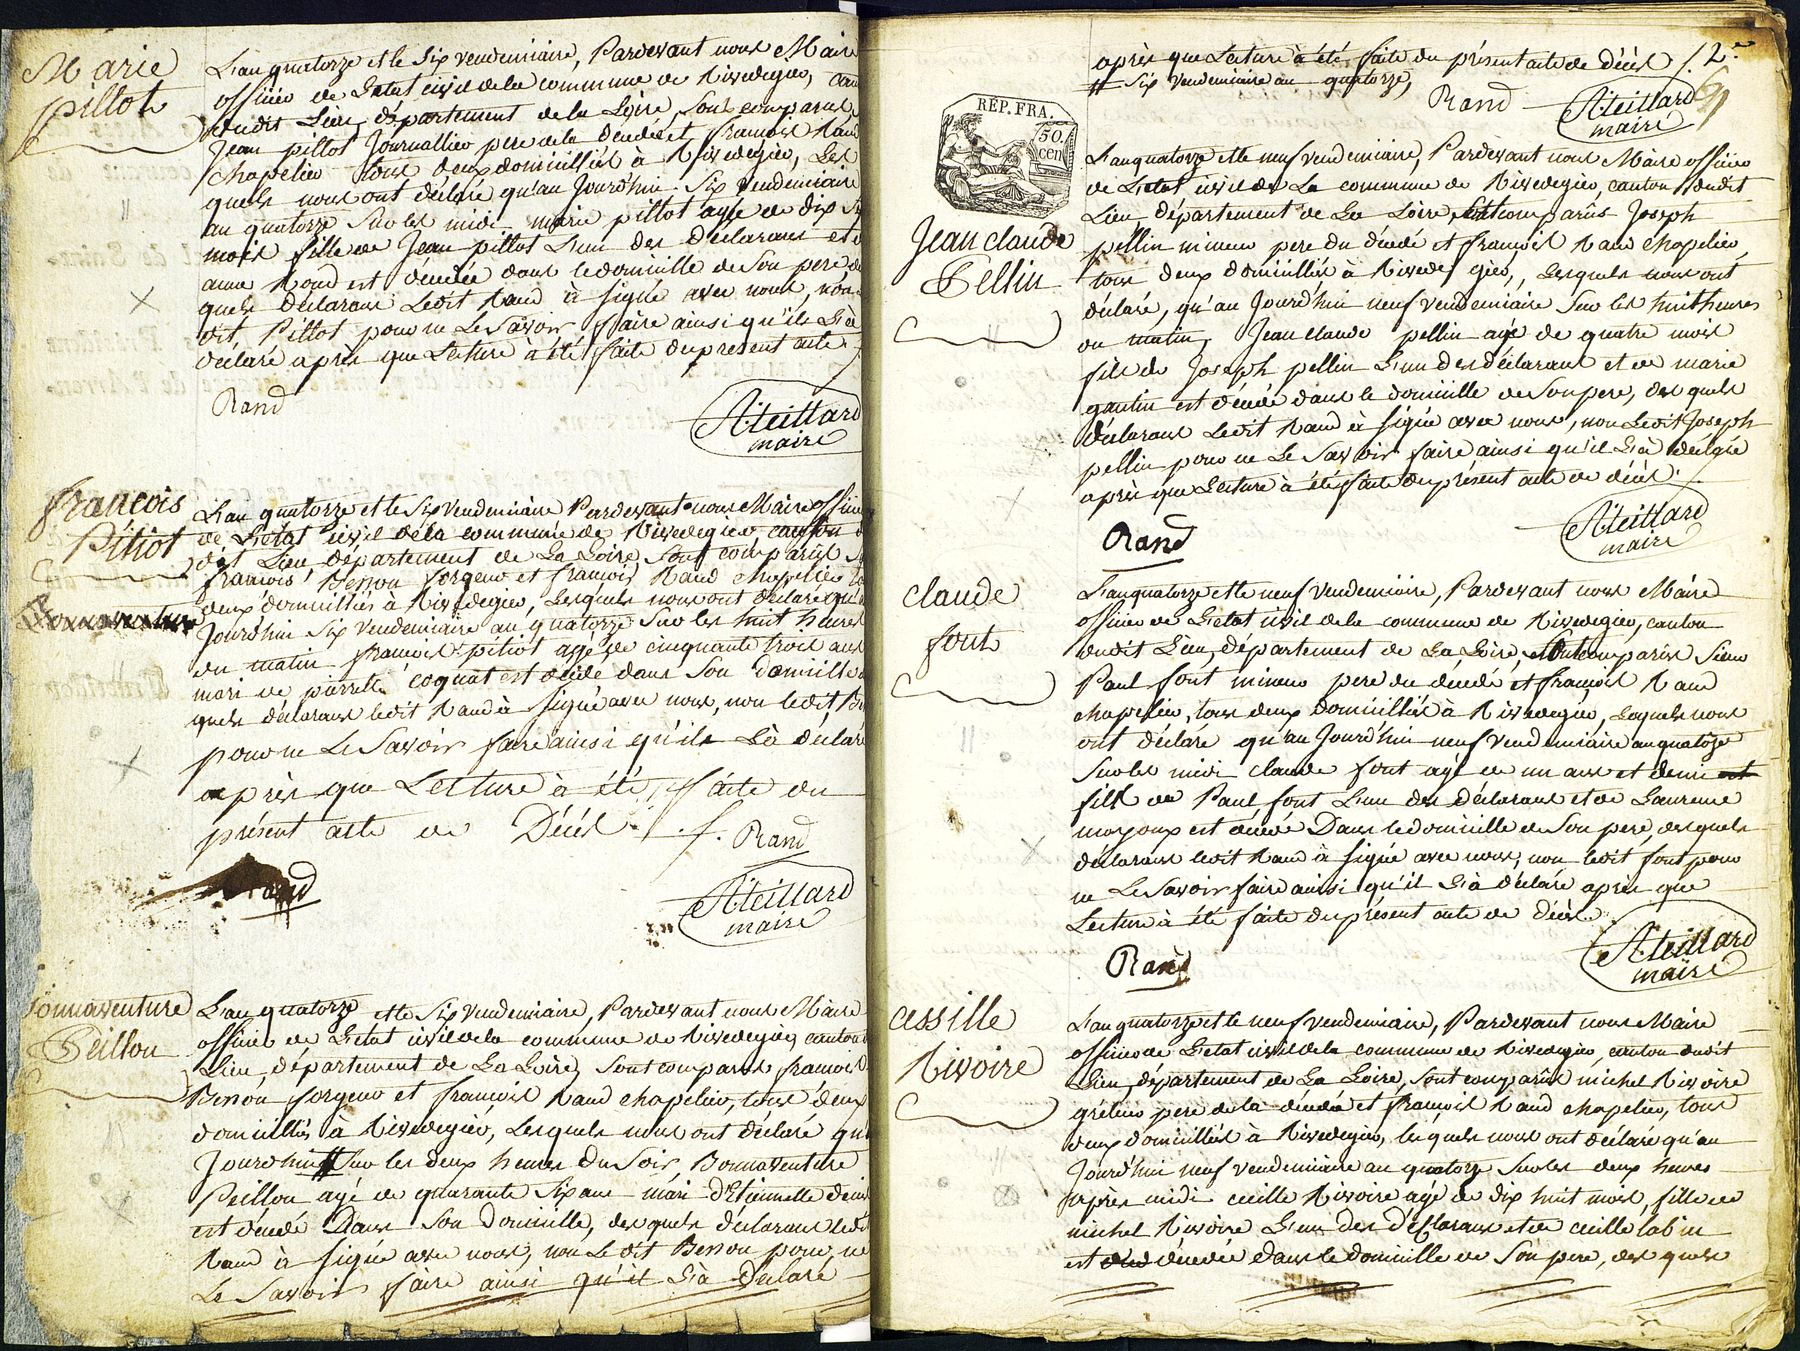 Marie
pillot
L'an quatorze et le six vendemiaire, Pardevant nous Maire
officier de L'etat civil de la commune de Rivedegier, can
dudit Lieu, département de la Loire, sont comparus
Jean pillot Journallier pere de la décédée et françois Rand
chapelier tous deux domicilliés à Rivedegier, Les
quels nous ont déclaré qu'au Jourd'hui six vendemiaire
an quatorze sur les midi marie pillot agée de dix
mois fille de Jean pillot L'un des déclarans et d
anne Rond est décédée dans le domicille de son pere, des
quels déclarans Ledit Rand à signé avec nous, non
dit, Pillot pour ne Le Savoir faire ainsi qu'il L'à
déclaré après que Lecture à été faite du present acte.
Rand
A. teillard
maire
francois
Pitiot
L'an quatorze et le six vendemiaire Pardevant nous Maire officier
de L'état civil de la commune de Rivedegier, canton
dit Lieu département de La Loire, sont comparus
francois Besson forgeur et francois Rand chapelier
deux domicilliés à Rivedegier, Lesquels nous ont declaré qu'
Jourd'hui six vendemiaire an quatorze sur les huit heures
du matin francois pitiot agé de cinquante trois ans
mari de pierrette coquat est décédé dans son domicille
quels déclarans ledit Rand à signé avec nous, non ledit, B
pour ne Le Savoir faire ainsi qu'ils L'à déclaré
après que Lecture à été faite du
présent acte de Décés
Rand
Rand
A. teillard
maire
Bonnaventure
Peillon
L'an quatorze et le six vendemiaire, Pardevant nous Maire
officier de L'etat civil de la commune de Rivedegier, canton
Lieu, département de La Loire, sont comparus francois
Besson forgeur et francois Rand chapelier, tous deux
domicilliés à Rivedegier, Lesquels nous ont declaré qu
Jourd'hui # sur les deux heures du soir, Bonnaventure
Peillon agé de quarante six ans mari d'Etiennette
est décédé Dans son domicille, des quels déclarans ledit
Rand à signé avec nous, non Le dit Besson pour ne
Le Savoir faire ainsi qu'il L'à Déclaré
après que Lecture à été faite du présent acte de décès /. 2.e
# six vendemiaire an quatorze,
Rand
A. teillard
maire
REP. FRA.
50.
cen
Jean claude
Pellin
L'an quatorze et le neuf vendemiaire, Pardevant nous Maire officier
de L'etat civil de La commune de Rivedegier, canton dudit
Lieu, département de La Loire, sont comparûs Joseph
pellin mineur pere du décédé et françois Rand chapelier,
tous deux domicilliés à Rivedegier, Lesquels nous ont
déclaré, qu'au Jourd'hui neuf vendemiaire sur les huit heures
du matin, Jean claude pellin agé de quatre mois
fils de Joseph pellin L'un des déclarans et de marie
gautin est décédé dans le domicille de son pere, des quels
déclarans Ledit Rand à signé avec nous, non Ledit Joseph
pellin pour ne Le Savoir faire ainsi qu'il L'à déclaré
après que Lecture à été faite du présent acte de décès.
Rand
A. teillard
maire
claude
font
L'an quatorze et le neuf vendemiaire, Pardevant nous Maire
officier de L'etat civil de la commune de Rivedegier, canton
dudit Lieu, département de La Loire, sont comparûs sieur
Paul font mineur pere du décédé et françois Rand
chapelier, tous deux domicilliés à Rivedegier, Lesquels nous
ont déclaré qu'au Jourd'hui neuf vendemiaire an quatorze
sur les midi claude font agé de un ans et demi
fils de Paul font L'un des déclarans et de Laurence
est décédé Dans le domicille de son pere, des quels
déclarans ledit Rand à signé avec nous, non ledit font pour
ne Le Savoir faire ainsi qu'il L'à déclaré après que
Lecture à été faite du présent acte de décès
Rand
A. teillard
maire
cessille
Rivoire
L'an quatorze et le neuf vendemiaire, Pardevant nous Maire
officier de L'etat civil de la commune de Rivedegier, canton dudit
Lieu, département de La Loire, sont comparûs michel Rivoire
pere de la décédée et françois Rand chapelier, tous
deux domicilliés à Rivedegier, les quels nous ont déclaré qu'au
Jourd'hui neuf vendemiaire an quatorze sur les deux heures
après midi cecille Rivoire agé de dix huit mois, fille de
michel Rivoire L'un des déclarans et de cecille
est décédée dans le domicille de son pere, des quels